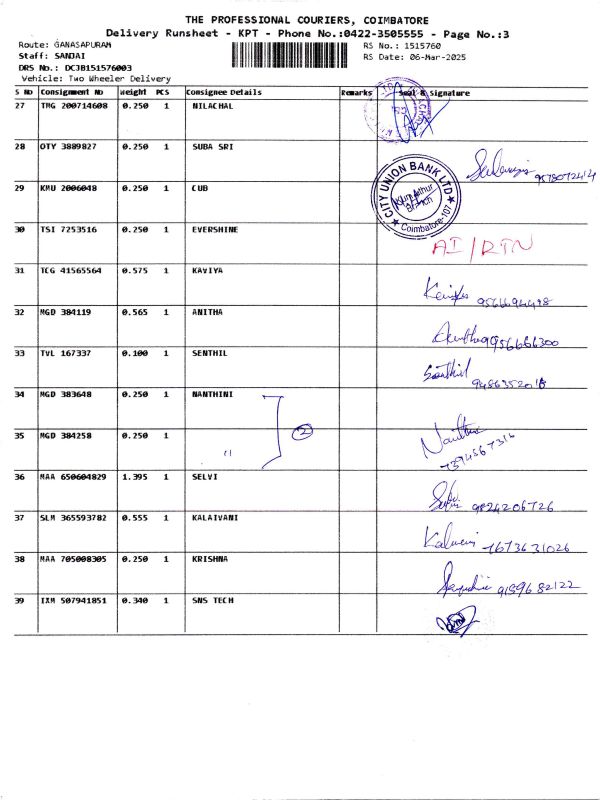 THE PROFESSIONAL COURIERS, COIMBATORE
Delivery Runsheet - KPT - Phone No.:0422-3505555 - Page No.:3
Route: GANASAPURAM
RS No.: 1515760
Staff: SANJAI
RS Date: 06-Mar-2025
DRS No.: DCJB151576003
Vehicle: Two Wheeler Delivery
S NO Consignment No Weight PCS Consignee Details Remarks Seal & Signature
27 TMG 200714608 0.250 1 NILACHAL
28 OTY 3889827 0.250 1 SUBA SRI
9578072414
29 KMU 2006048 0.250 1 CUB
CITY UNION BANK LTD
Branch
Coimbatore-107
30 TSI 7253516 0.250 1 EVERSHINE
AI/RTN
31 TCG 41565564 0.575 1 KAVIYA
9566694498
32 MGD 384119 0.565 1 ANITHA
Anitha 9956666300
33 TVL 167337 0.100 1 SENTHIL
Senthil
9486352018
34 MGD 383648 0.250 1 NANTHINI
35 MGD 384258 0.250 1 "
2
7394567316
36 MAA 650604829 1.395 1 SELVI
9824206726
37 SLM 365593782 0.555 1 KALAIVANI
7673631026
38 MAA 705008305 0.250 1 KRISHNA
9159682122
39 IXM 507941851 0.340 1 SNS TECH